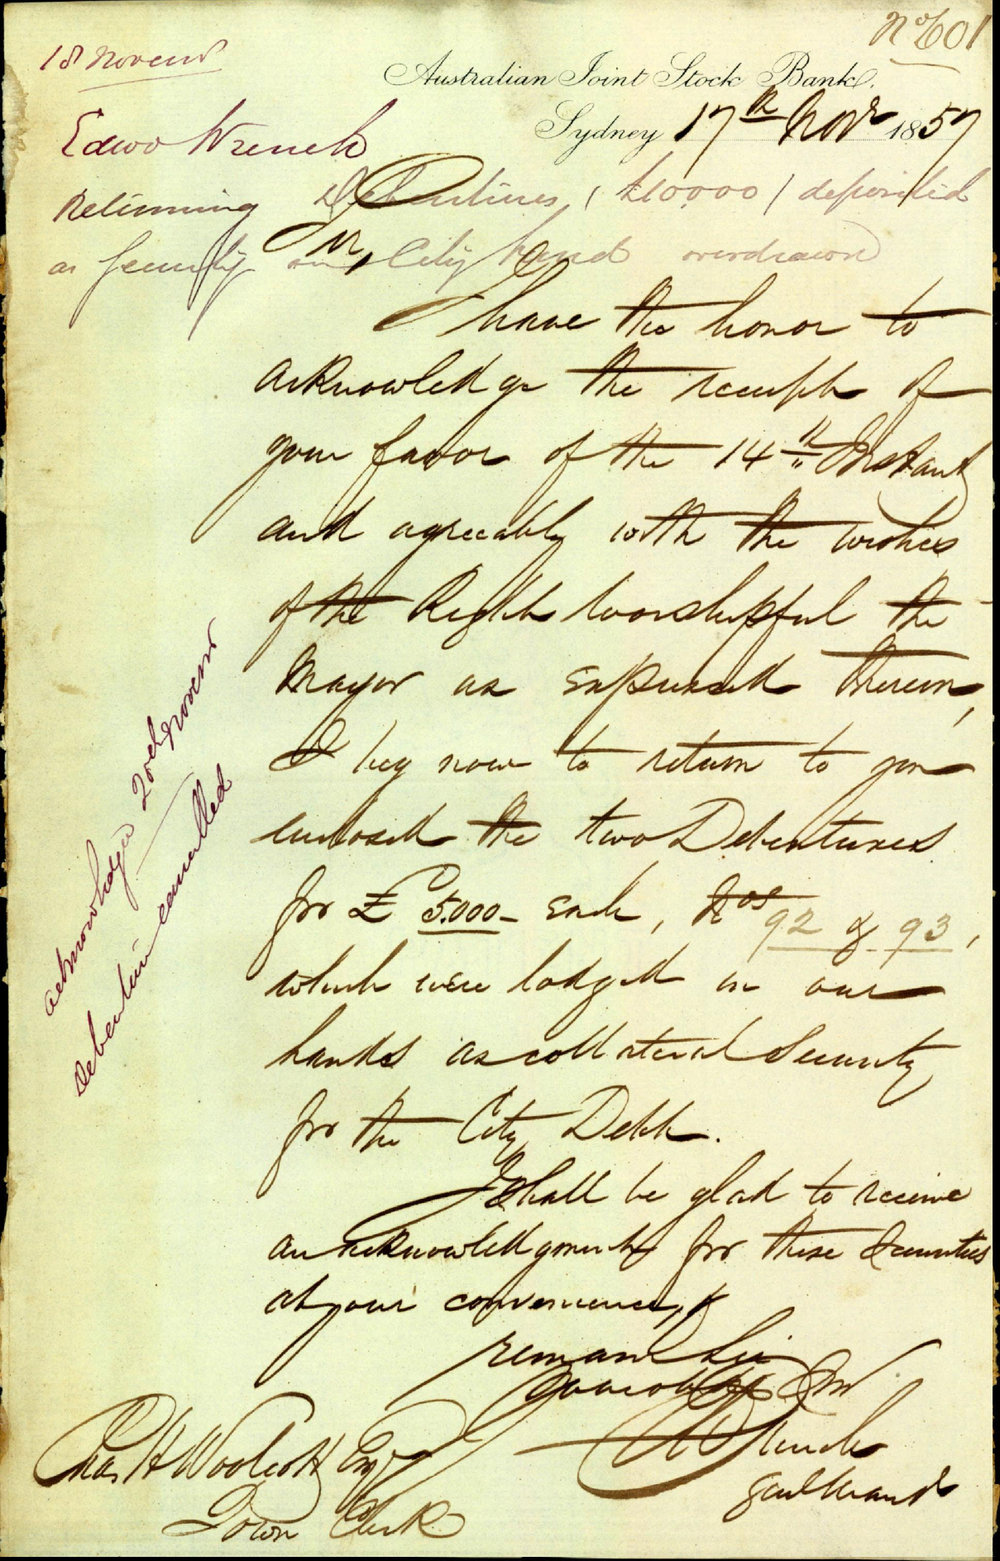 No 601
18 Novemr
Australian Joint Stock Bank.
Sydney 17th Novr 1857
Edwd Wrench
Returning Debentures (£10000) deposited
as security on City fund overdrawn
Sir,
I have the honor to
acknowledge the receipt of
your favor of the 14th Instant
and agreeably with the wishes
of the Right Worshipful the
Mayor as expressed therein,
I beg now to return to you
enclosed the two Debentures
for £5.000 - each, Nos 92 & 93,
which were lodged in our
hands as collateral Security
for the City Debt.
I shall be glad to receive
an acknowledgment for these Securities
at your convenience, &
remain Sir
Your ob St
Wrench
Genl Manr
Chas H Woolcott Esq
Town Clerk
acknowledged 20th Novemr
Debenture cancelled